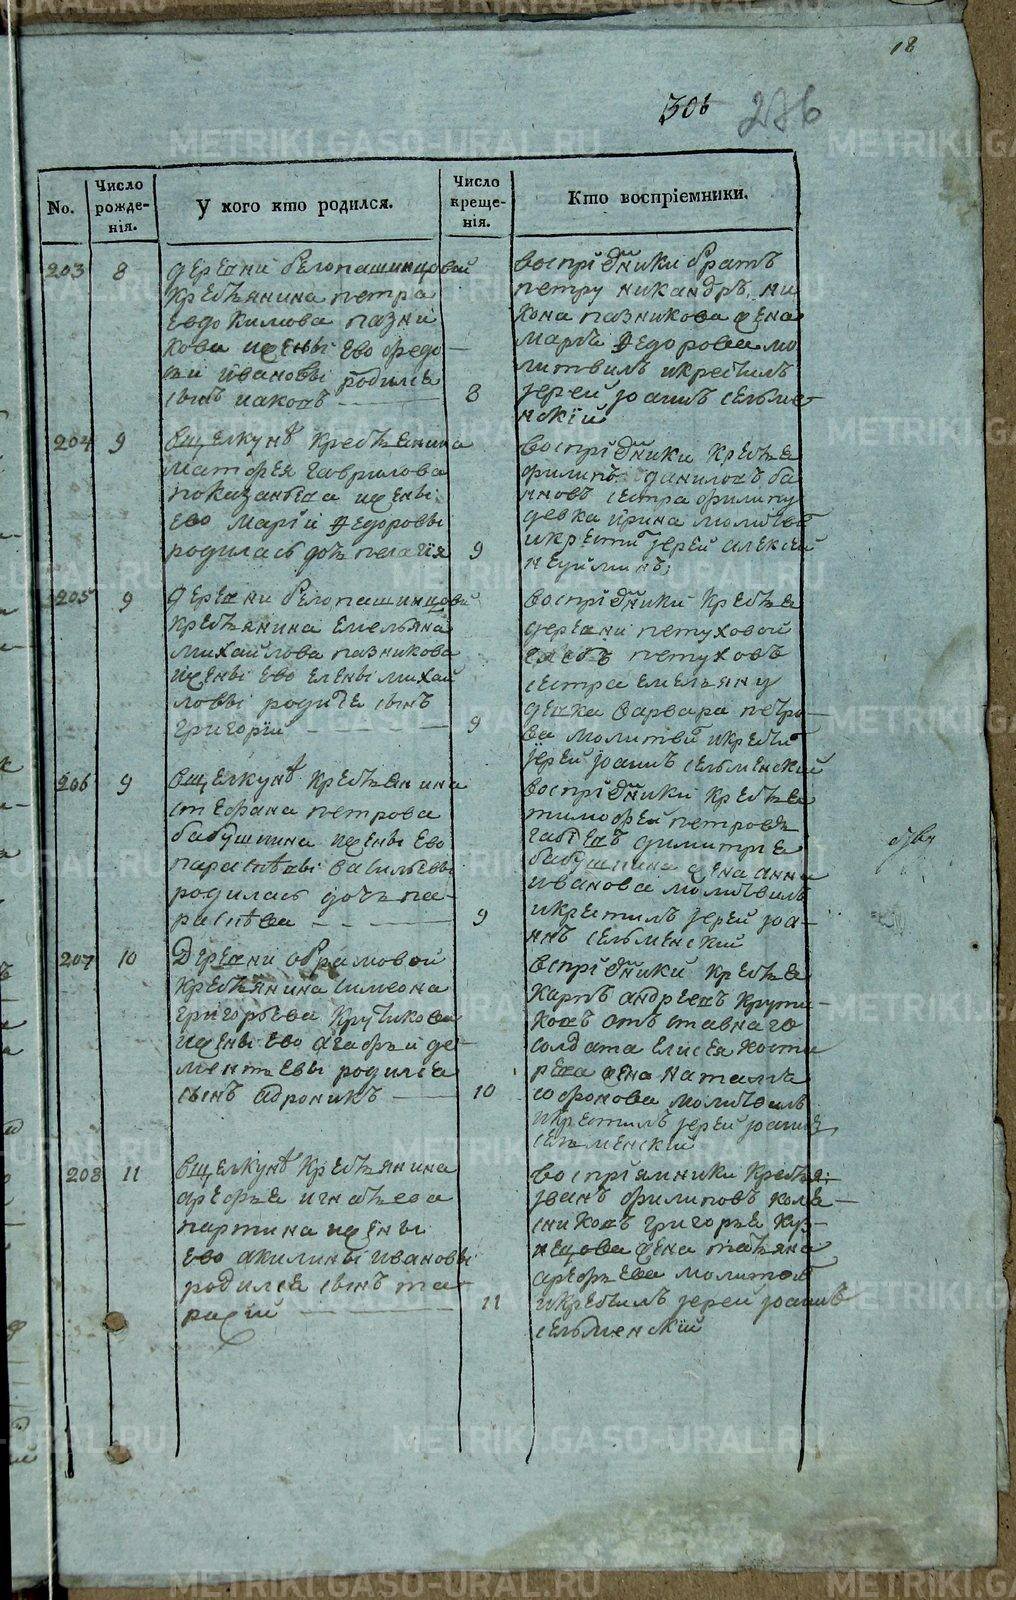 18
306
276
No.
Число рожде-нія.
У кого кто родился.
Число креще-нія.
Кто воспріемники.
203 8
деревни белопашинцовой
крестьянина петра
евдокимова пазни
кова ижены ево федо
сьи ивановы родился
сынъ иаковъ 8
воспріемники братъ
петру никандръ, ни
кона пазникова жена
марья федорова мо
литвилъ икрестилъ
іерей іоаннъ сельме
нскій
204 9
вщелкунѣ крестьянина
матфея гаврилова
показаньева ижены
ево маріи федоровы
родилась дочь пелагія 9
воспріемники крестья
филипъ даниловъ ба
иновъ сестра филипу
девка ирина молитви
икрести іерей алексей
неуйминъ
205 9
деревни белопашинцовой
крестьянина емельяна
михайлова пазникова
ижены ево елены михай
ловы родися сынъ
григорій 9
воспріемники крестья
деревни петуховой
глебъ петуховъ
сестра емельяну
девка варвара петро
ва молитви икрести
іерей іоаннъ сельменский
206 9
вщелкунѣ крестьянина
стефана петрова
бабушкина ижены ево
парасковьи васильевы
родилась дочь па-
расковья 9
воспріемники крестья
тимофей петровъ
димитрія
бабушкина жена анна
иванова молитвилъ
икрестилъ іерей іоа-
ннъ сельменский
207 10
Деревни абрамовой
крестьянина симеона
григорьева крутикова
ижены ево агафьи де-
ментьевы родился
сынъ адроникъ 10
воспріемники крестья
карпъ андреевъ крути-
ковъ отъставнаго
солдата елисея кости
рева жена наталья
софронова молитвилъ
икрестилъ іерей іоаннъ
сельменскій
208 11
вщелкунѣ крестьянина
арефья игнатьева
партина ижены
ево акилины ивановы
родился сынъ та-
расій 11
воспріямники крестья:
іванъ филиповъ коле
сниковъ григорья куз-
нецова жена татьяна
арефьева молитви
икрестилъ іереи іоаннъ
сельменскій
METRIKI.GASO-URAL.RU